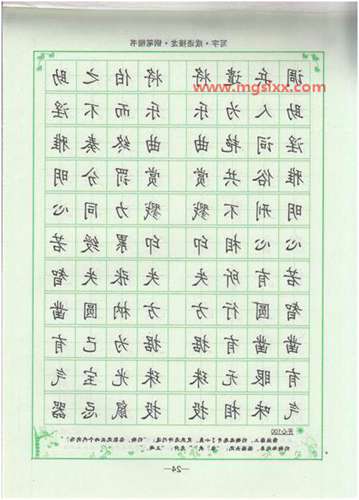 写字·成语接龙·钢笔楷书
www.mgsixx.com
调兵遣将 将伯之助
助人为乐 乐而不淫
淫词艳曲 曲终奏雅
雅俗共赏 赏罚分明
明刑不戮 戮力同心
心心相印 印累绶若
若有所失 失张失智
智圆行方 方枘圆凿
凿凿有据 据为己有
有眼无珠 珠光宝气
气味相投 投鼠忌器
开心100
—24—